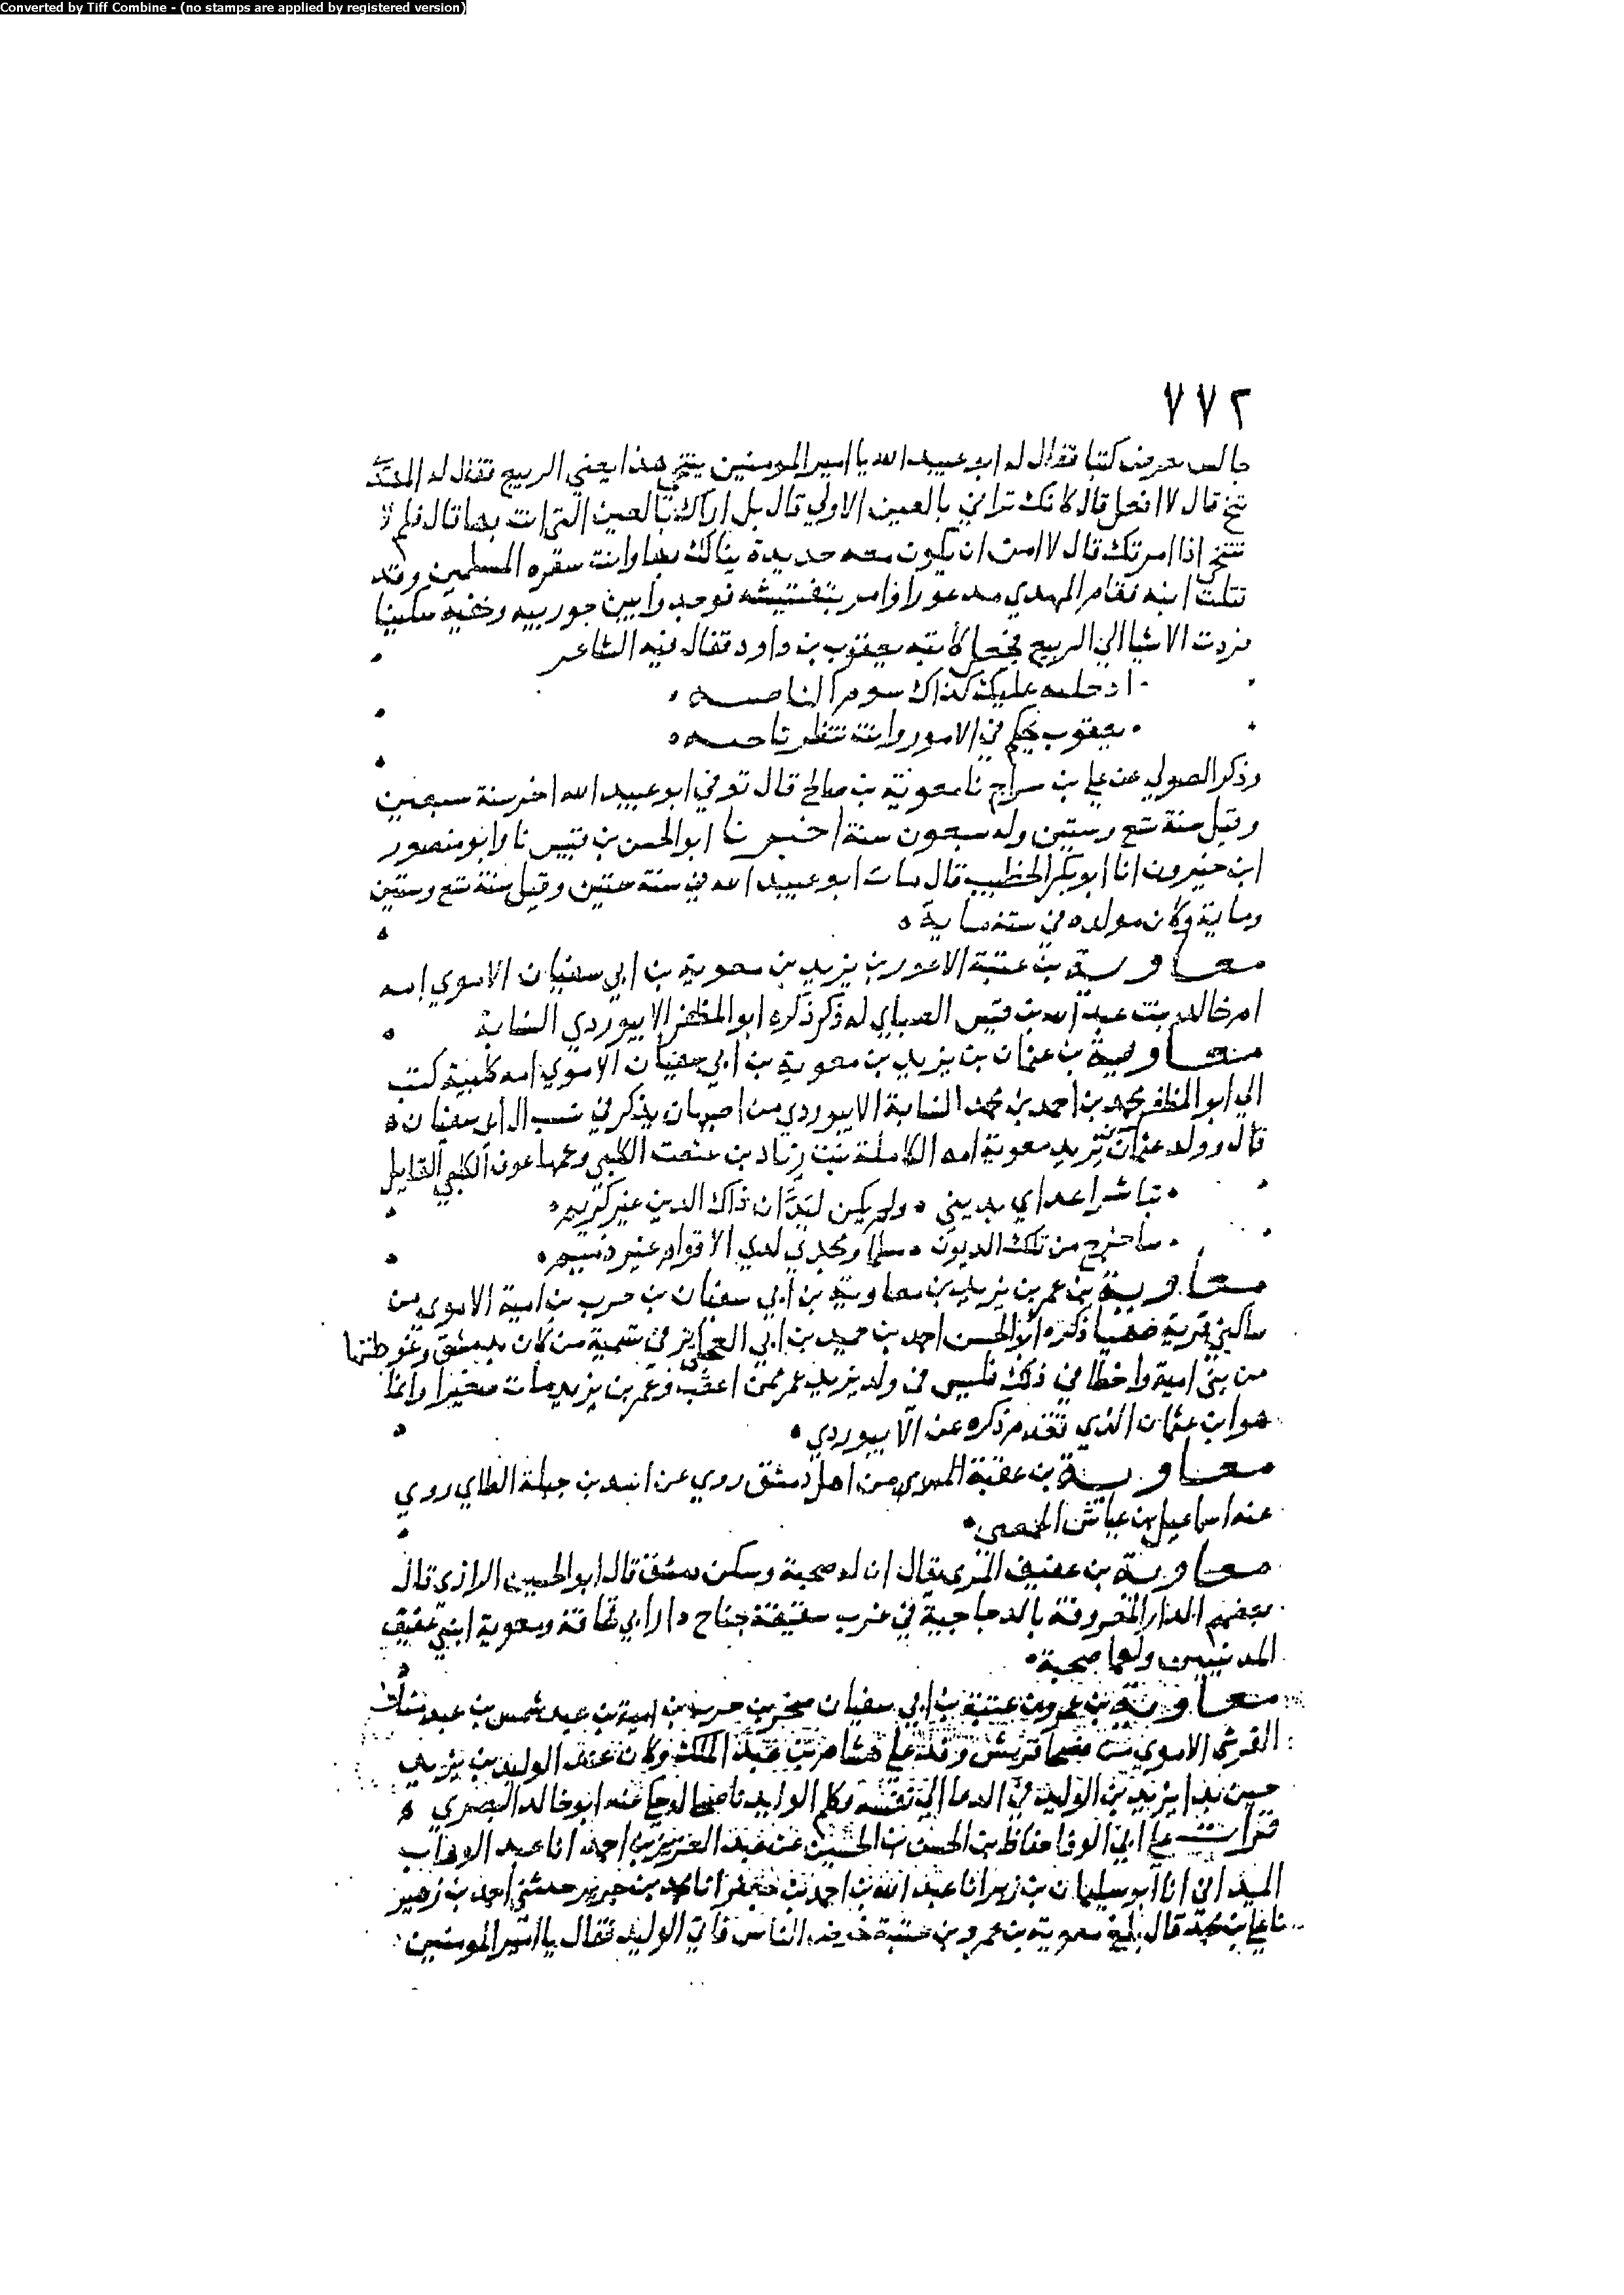 Converted by Tiff Combine - (no stamps are applied by registered version)
٧٧٢
جالس يعرض كتبا فقال له ابو عبيد الله يا امير المومنين يتنحى هذا يعني الربيع فقال له المهدي
تنح قال لا افعل قال كانك تراني بالعين الاولي قال بل اراك بالعين التي انت بها قال فلم لا
تتنحى اذا امرتك قال لا امن ان يكون معه حديدة ينالك بها وانت المسلمين وقد
قتلت ابنه فقام المهدي مدعورا وامر بتفتيشه فوجدوا بين جوربيه وخفيه سكينا
فردت الاشيا الي الربيع فجعل كاتبه يعقوب بن داود فقال فيه الشاعر
ادخلته عليك كذاك سوم الناصيه
يعقوب يحكم في الامور وانت تنظر ناحيه
وذكر الصولي عن علي بن سراج نا معوية بن صالح قال توفي ابو عبيد الله اخر سنة سبعين
وقيل سنة تسع وستين وله سبعون سنة اخبرنا ابو الحسن بن قبيس نا وابو منصور
ابن خيرون انا ابو بكر الخطيب قال مات ابو عبيد الله في سنة سبعين وقيل سنة تسع وستين
وماية وكان مولده في سنة ماية
معاوية بن عتبة الاعور بن يزيد بن معوية بن ابي سفيان الاموي امه
ام خالد بنت عبد الله بن قيس له ذكر ذكره ابو المظفر الابيوردي النسابة
معاوية بن عثمان بن يزيد بن معوية بن ابي سفيان الاموي امه كلبية كتب
الي ابو المظفر محمد بن احمد بن محمد النسابة الابيوردي من اصبهان يذكر في نسب ال ابي سفيان
قال وولد عثمان بن يزيد معوية امه الكاملة بنت زياد بن الكلبي وعمها عون الكلبي القايل
تباشر اعداي بديني ولم يكن ليدان ذاك الدين غير كريم
ساخرج من تلك الديون سلما ومجدي لدي الاقوام غير ذميم
معاوية بن عمر بن يزيد بن معاوية بن ابي سفيان بن حرب بن امية الاموي من
ساكني قرية ذكره ابو الحسن احمد بن حميد بن ابي العجايز في تسمية من كان بدمشق وغوطتها
من بني امية واخطا في ذلك فليس في ولد يزيد عمر ممن اعقب وعمر بن يزيد مات صغيرا وانما
هو ابن عثمان الذي تقدم ذكره عن الابيوردي
معاوية بن عقبة من اهل دمشق روي عن بن جبلة الطاي روي
عنه اسماعيل بن عياش الحمصي
معاوية بن عفيف المزي يقال ان له صحبة وسكن دمشق قال ابو الحسين الرازي قال
بعضهم الدار المعروفة بالدجاجية في غرب سقيفة جناح دار ابي قحافة ومعوية ابني عفيف
المدنيين ولهما صحبة
معاوية بن عمرو بن عتبة بن ابي سفيان صخر بن حرب بن امية بن عبد شمس بن عبد مناف
القرشي الاموي من فصحا قريش وفد علي هشام بن عبد الملك وكان عند الوليد بن يزيد
حين بدا يزيد بن الوليد في الدعا الي نفسه وكلم الوليد ناصحا له حكا عنه ابو خالد البصري
قرات علي ابي الوفا حفاظ بن الحسن بن الحسين عن عبد العزيز بن احمد انا عبد الوهاب
الميداني انا ابو سليمان بن زبر انا عبد الله بن احمد بن جعفر انا محمد بن جرير حدثني احمد بن زهير
نا علي بن محمد قال بلغ معوية بن عمرو بن عتبة خوض الناس فاتي الوليد فقال يا امير المومنين